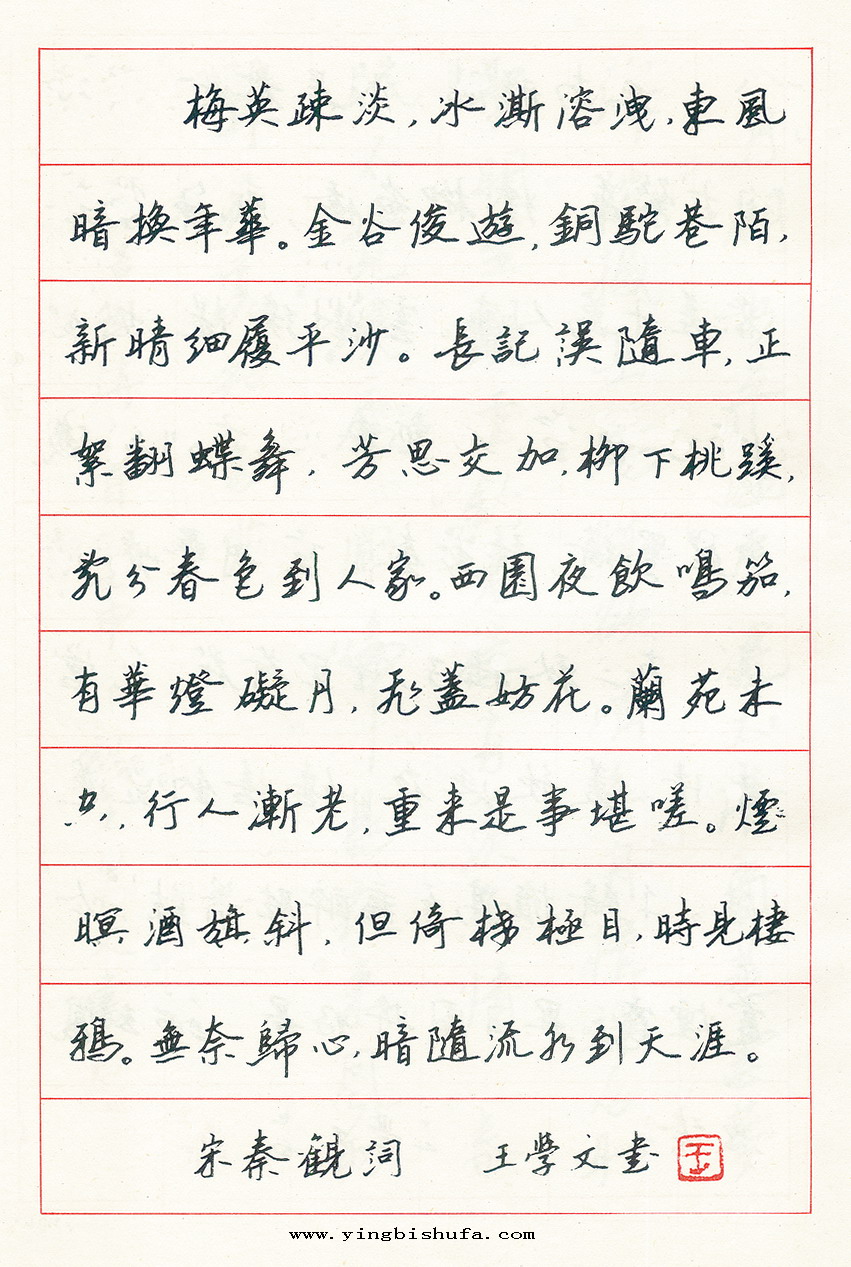 梅英疎淡，冰澌溶洩，東風
暗換年華。金谷俊遊，銅駝巷陌，
新晴細履平沙。長記誤隨車，正
絮翻蝶舞，芳思交加，柳下桃蹊，
亂分春色到人家。西園夜飲鳴笳，
有華燈礙月，飛蓋妨花。蘭苑未
空，行人漸老，重来是事堪嗟。煙
暝酒旗斜，但倚樓極目，時見棲
鴉。無奈歸心，暗隨流水到天涯。
宋秦觀詞 王學文書
www.yingbishufa.com